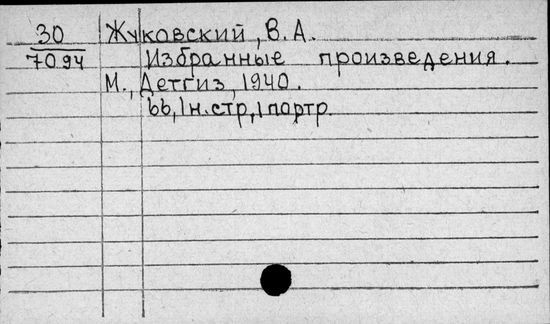 30 Жуковский, В.А.
7094 Избранные произведения.
М., Детгиз, 1940.
66, 1 н.стр, 1 портр.